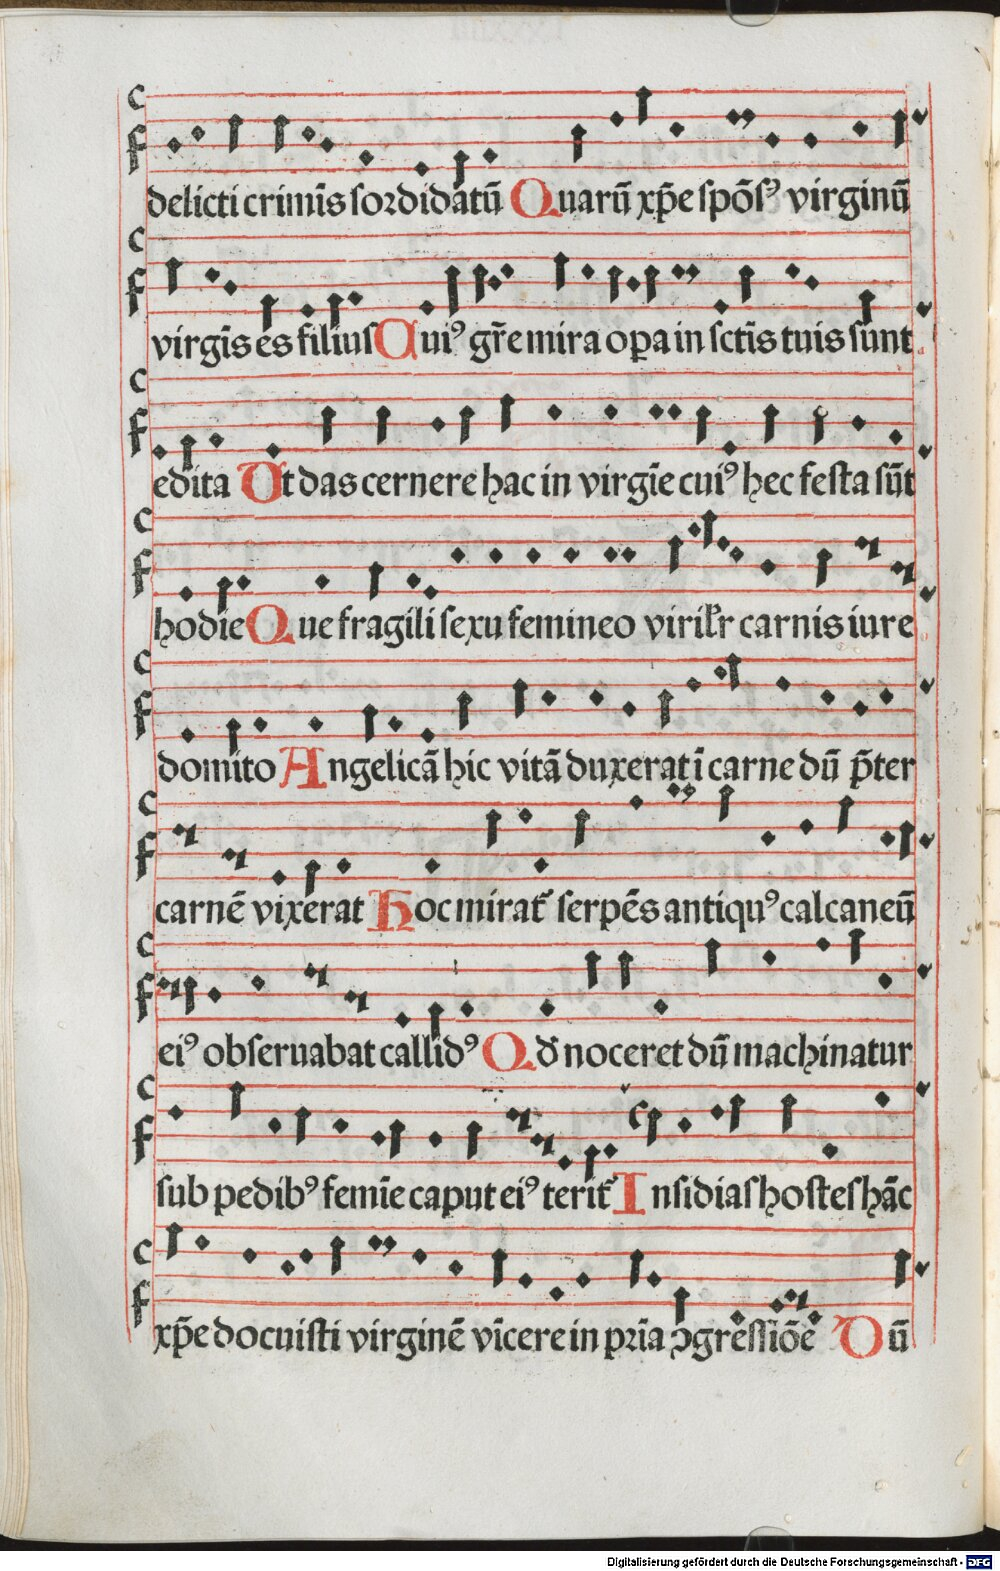 delicti crimīs sordidatū Quarū xp̄e spōsꝰ virginū
virgīs es filius Cuiꝰ gr̄e mira oꝑa in sctīs tuis sunt
edita Ut das cernere hac in virgīe cuiꝰ hec festa sūt
hodie Que fragili sexu femineo virilr̄ carnis iure
domito Angelicā hic vitā duxerat ī carne dū p̄ter
carnē vixerat Hoc mirat᷑ serpēs antiquꝰ calcaneū
eiꝰ obseruabat callidꝰ Qđ noceret dū machinatur
sub pedibꝰ femīe caput eiꝰ terit᷑ Insidias hostes hāc
xp̄e docuisti virginē vīcere in prīa ↄgressiōe Dū
Digitalisierung gefördert durch die Deutsche Forschungsgemeinschaft - DFG